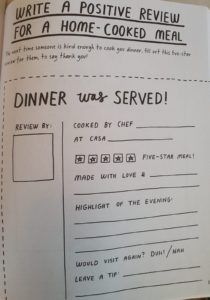 WRITE A POSITIVE REVIEW
FOR A HOME-COOKED MEAL
The next time someone is kind enough to cook you dinner, fill out this five-star
review for them, to say thank you!
DINNER was SERVED!
REVIEW BY:
COOKED BY CHEF
AT CASA
FIVE-STAR MEAL!
MADE WITH LOVE &
HIGHLIGHT OF THE EVENING:
WOULD VISIT AGAIN? DUH! / NAH
LEAVE A TIP: